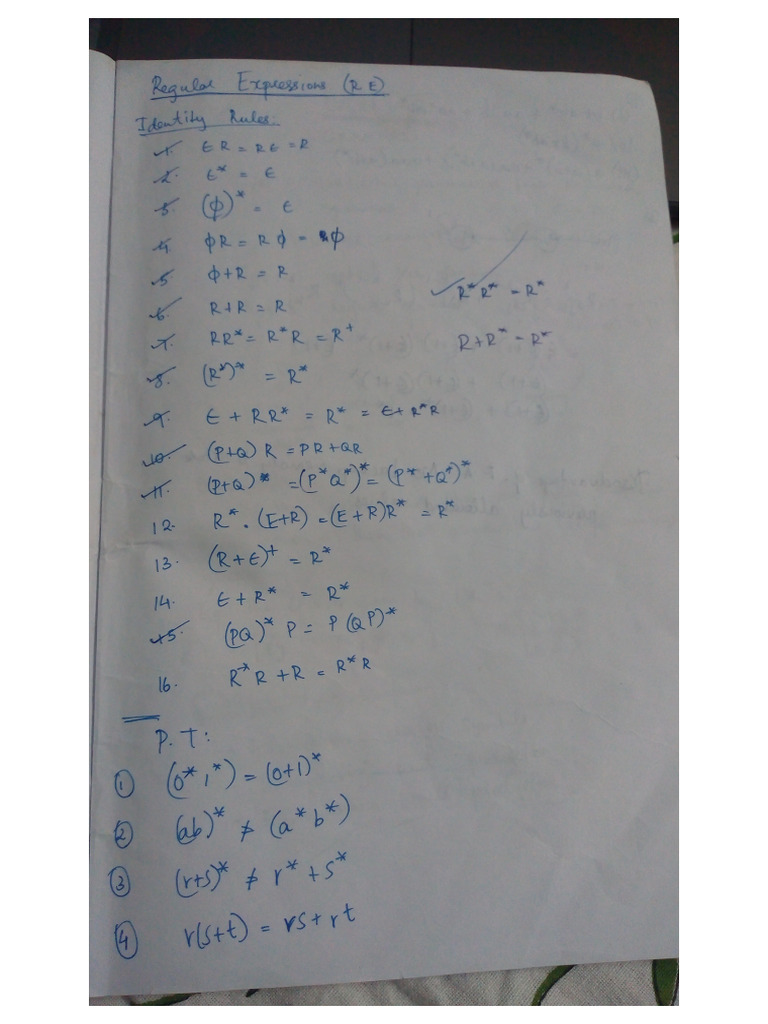 Regular Expressions (RE)
Identity Rules.
1. ϵR = Rϵ = R
2. ϵ* = ϵ
3. (ϕ)* = ϵ
4. ϕR = Rϕ = ϕ
5. ϕ+R = R
6. R+R = R
R*R* = R*
7. RR* = R*R = R+
R+R* = R*
8. (R*)* = R*
9. ϵ + RR* = R* = ϵ+R*R
10. (P+Q) R = PR+QR
11. (P+Q)* = (P*Q*)* = (P*+Q*)*
12. R*.(E+R) = (E+R)R* = R*
13. (R+ϵ)+ = R*
14. ϵ+R* = R*
15. (PQ)* P = P(QP)*
16. R*R + R = R*R
P.T:
① (0*1*) = (0+1)*
② (ab)* ≠ (a*b*)
③ (r+s)* ≠ r*+s*
④ r(s+t) = rs+rt